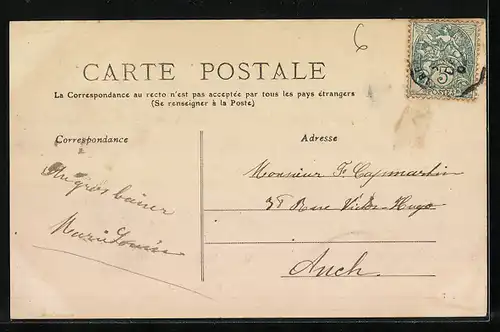 6
CARTE POSTALE
La Correspondance au recto n'est pas acceptée par tous les pays étrangers
(Se renseigner à la Poste)
Correspondance
Un gros baiser
Marie Louise
Adresse
Monsieur F. Capmartin
37 Rue Victor-Hugo
Auch.
5